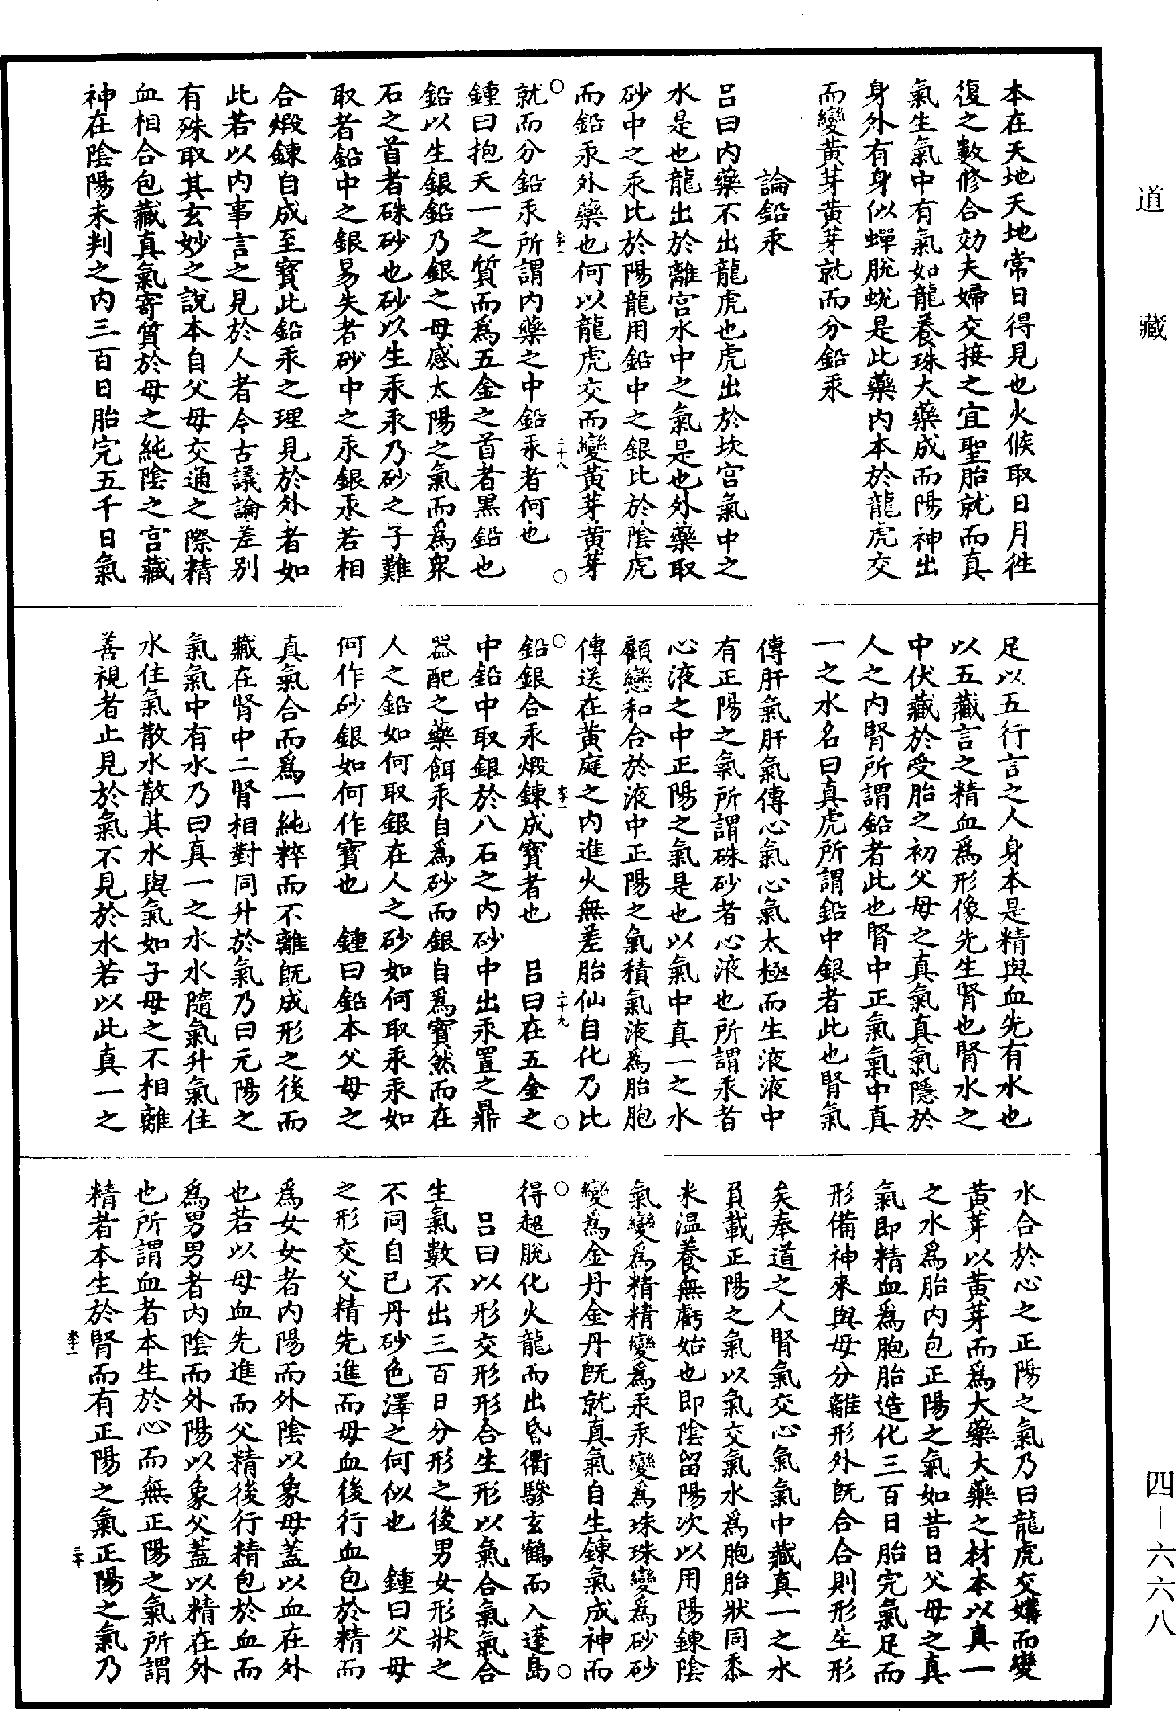 道藏
四—六六八
本在天地天地常日得見也火候取日月徃
復之數修合効夫婦交接之宜聖胎就而真
氣生氣中有氣如龍養珠大藥成而陽神出
身外有身似蟬脫蛻是此藥內本於龍虎交
而變黃芽黃芽就而分鉛汞
論鉛汞
呂曰內藥不出龍虎也虎出於坎宮氣中之
水是也龍出於離宮水中之氣是也外藥取
砂中之汞比於陽龍用鉛中之銀比於陰虎
而鉛汞外藥也何以龍虎交而變黃芽黃芽
就而分鉛汞所謂內藥之中鉛汞者何也
鍾曰抱天一之質而為五金之首者黑鉛也
鉛以生銀鉛乃銀之母感太陽之氣而為衆
石之首者硃砂也砂以生汞汞乃砂之子難
取者鉛中之銀易失者砂中之汞銀汞若相
合煅鍊自成至寳此鉛汞之理見於外者如
此若以內事言之見於人者今古議論差別
有殊取其玄妙之說本自父母交通之際精
血相合包藏真氣寄質於母之純陰之宮藏
神在陰陽未判之內三百日胎完五千日氣
足以五行言之人身本是精與血先有水也
以五藏言之精血為形像先生腎也腎水之
中伏藏於受胎之初父母之真氣真氣隱於
人之內腎所謂鉛者此也腎中正氣氣中真
一之水名曰真虎所謂鉛中銀者此也腎氣
傳肝氣肝氣傳心氣心氣太極而生液液中
有正陽之氣所謂硃砂者心液也所謂汞者
心液之中正陽之氣是也以氣中真一之水
顧戀和合於液中正陽之氣積氣液為胎胞
傳送在黃庭之內進火無差胎仙自化乃比
鉛銀合汞煅鍊成寳者也　呂曰在五金之
中鉛中取銀於八石之內砂中出汞置之鼎
器配之藥餌汞自為砂而銀自為寳然而在
人之鉛如何取銀在人之砂如何取汞汞如
何作砂銀如何作寳也　鍾曰鉛本父母之
真氣合而為一純粹而不離旣成形之後而
藏在腎中二腎相對同升於氣乃曰元陽之
氣氣中有水乃曰真一之水水隨氣升氣住
水住氣散水散其水與氣如子母之不相離
善視者止見於氣不見於水若以此真一之
水合於心之正陽之氣乃曰龍虎交媾而變
黃芽以黃芽而為大藥大藥之材本以真一
之水為胎內包正陽之氣如昔日父母之真
氣即精血為胞胎造化三百日胎完氣足而
形備神來與母分離形外旣合合則形生形
矣奉道之人腎氣交心氣氣中藏真一之水
負載正陽之氣以氣交氣水為胞胎狀同黍
米温養無虧始也即陰留陽次以用陽鍊陰
氣變為精精變為汞汞變為珠珠變為砂砂
變為金丹金丹旣就真氣自生鍊氣成神而
得超脫化火龍而出昏衢驂玄鶴而入蓬島
呂曰以形交形形合生形以氣合氣氣合
生氣數不出三百日分形之後男女形狀之
不同自己丹砂色澤之何似也　鍾曰父母
之形交父精先進而母血後行血包於精而
為女女者內陽而外陰以象母蓋以血在外
也若以母血先進而父精後行精包於血而
為男男者內陰而外陽以象父蓋以精在外
也所謂血者本生於心而無正陽之氣所謂
精者本生於腎而有正陽之氣正陽之氣乃